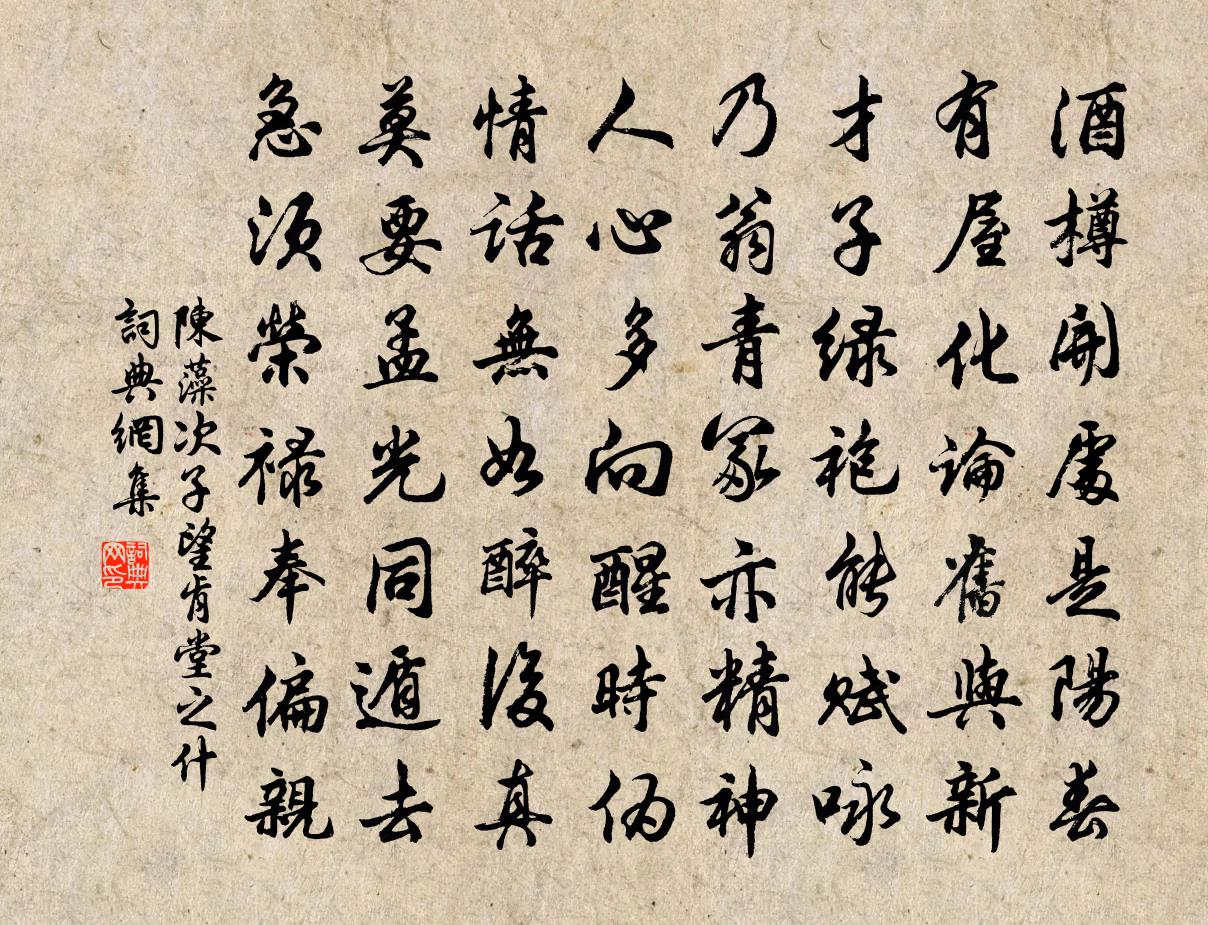 酒樽開處是陽春
有屋化論舊與新
才子绿袍能賦咏
乃翁青冢亦精神
人心多向醒時伪
情話無如醉後真
莫要孟光同遁去
急須榮禄奉偏親
陳藻次子望肯堂之什
詞典網集
詞典网印